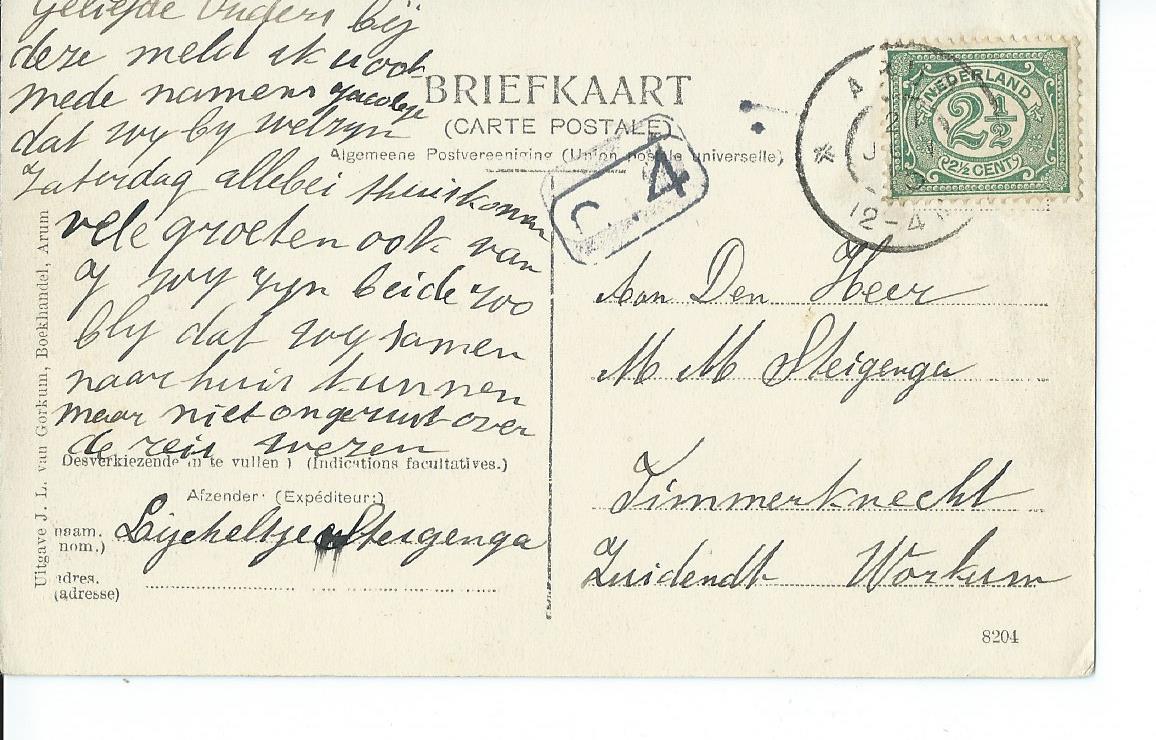 Geliefde Ouders bij
deze meld ik u ook
mede namens
dat wy by welzyn
Zaterdag allebei thuiskomen
vele groeten ook van
J wy zyn beide zoo
bly dat wy samen
naar huis kunnen
maar niet ongerust over
de reis wezen
BRIEFKAART
(CARTE POSTALE)
Algemeene Postvereeniging (Union postale universelle)
NEDERLAND
2½
2½ CENT
12-4 N
4
Aan Den Heer
M M Steigenga
Timmerknecht
Zuidendt Workum
Desverkiezende in te vullen) (Indications facultatives.)
Afzender: (Expéditeur:)
naam.
nom.)
Steigenga
adres.
(adresse)
Uitgave J. L. van Gorkum, Boekhandel, Arum
8204